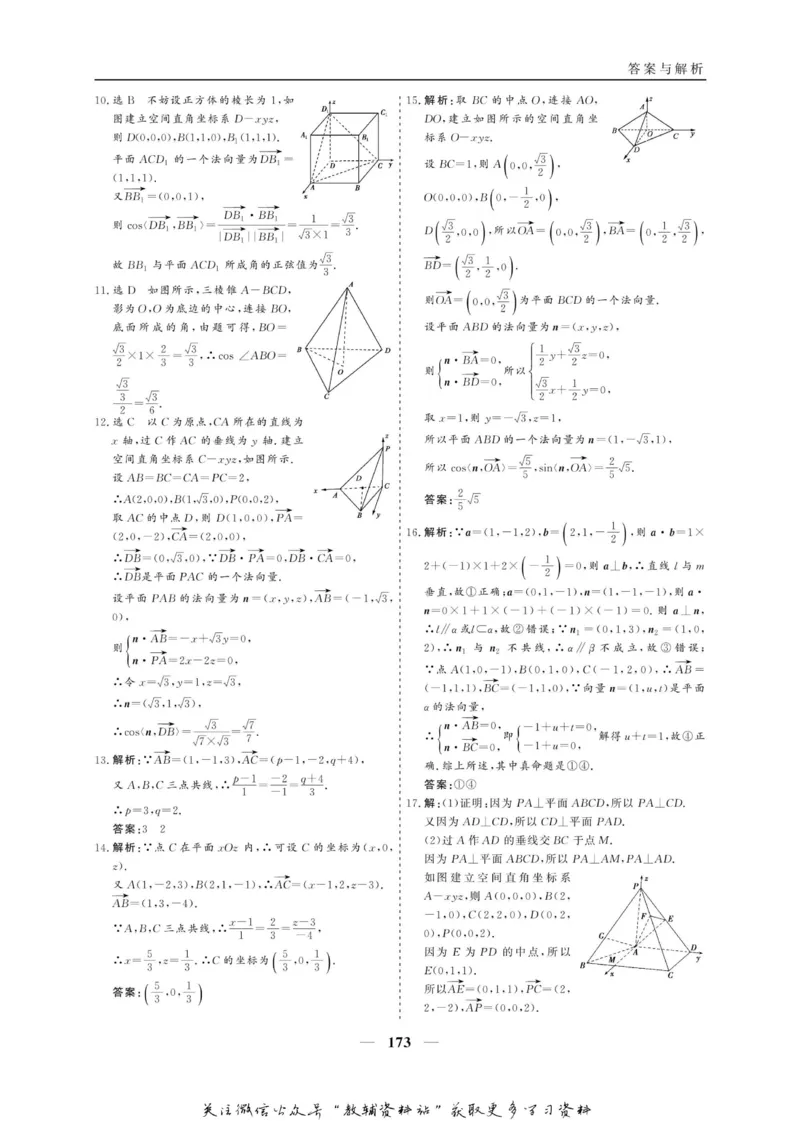 答案与解析
10.选B 不妨设正方体的棱长为1,如
图建立空间直角坐标系D-xyz,
则D(0,0,0),B(1,1,0),B₁(1,1,1).
平面ACD₁的一个法向量为DB₁→=
(1,1,1).
又BB₁→=(0,0,1),
则cos⟨DB₁→,BB₁→⟩=DB₁→·BB₁→/(|DB₁→||BB₁→|)=1/(√3×1)=√3/3.
故BB₁与平面ACD₁所成角的正弦值为√3/3.
11.选D 如图所示,三棱锥A-BCD,
影为O,O为底边的中心,连接BO,
底面所成的角,由题可得,BO=
√3/2×1×2/3=√3/3,∴cos∠ABO=
(√3/3)/2=√3/6.
12.选C 以C为原点,CA所在的直线为
x轴,过C作AC的垂线为y轴.建立
空间直角坐标系C-xyz,如图所示.
设AB=BC=CA=PC=2,
∴A(2,0,0),B(1,√3,0),P(0,0,2),
取AC的中点D,则D(1,0,0),PA→=
(2,0,-2),CA→=(2,0,0),
∴DB→=(0,√3,0),∵DB→·PA→=0,DB→·CA→=0,
∴DB→是平面PAC的一个法向量.
设平面PAB的法向量为n=(x,y,z),AB→=(-1,√3,
0),
则{n·AB→=-x+√3y=0,
n·PA→=2x-2z=0,
∴令x=√3,y=1,z=√3,
∴n=(√3,1,√3),
∴cos⟨n,DB→⟩=√3/(√7×√3)=√7/7.
13.解析:∵AB→=(1,-1,3),AC→=(p-1,-2,q+4),
又A,B,C三点共线,∴(p-1)/1=-2/-1=(q+4)/3.
∴p=3,q=2.
答案:3 2
14.解析:∵点C在平面xOz内,∴可设C的坐标为(x,0,
z).
又A(1,-2,3),B(2,1,-1),∴AC→=(x-1,2,z-3).
AB→=(1,3,-4).
∵A,B,C三点共线,∴(x-1)/1=2/3=(z-3)/-4,
∴x=5/3,z=1/3.∴C的坐标为(5/3,0,1/3).
答案:(5/3,0,1/3)
15.解析:取BC的中点O,连接AO,
DO,建立如图所示的空间直角坐
标系O-xyz.
设BC=1,则A(0,0,√3/2),
O(0,0,0),B(0,-1/2,0),
D(√3/2,0,0),所以OA→=(0,0,√3/2),BA→=(0,1/2,√3/2),
BD→=(√3/2,1/2,0).
则OA→=(0,0,√3/2)为平面BCD的一个法向量.
设平面ABD的法向量为n=(x,y,z),
则{n·BA→=0, n·BD→=0, 所以{1/2y+√3/2z=0,
√3/2x+1/2y=0,
取x=1,则y=-√3,z=1,
所以平面ABD的一个法向量为n=(1,-√3,1),
所以cos⟨n,OA→⟩=√5/5,sin⟨n,OA→⟩=2/5√5.
答案:2/5√5
16.解析:∵a=(1,-1,2),b=(2,1,-1/2),则a·b=1×
2+(-1)×1+2×(-1/2)=0,则a⊥b,∴直线l与m
垂直,故①正确;a=(0,1,-1),n=(1,-1,-1),则a·
n=0×1+1×(-1)+(-1)×(-1)=0.则a⊥n,
∴l∥α或l⊂α,故②错误;∵n₁=(0,1,3),n₂=(1,0,
2),∴n₁与n₂不共线,∴α∥β不成立,故③错误;
∵点A(1,0,-1),B(0,1,0),C(-1,2,0),∴AB→=
(-1,1,1),BC→=(-1,1,0),∵向量n=(1,u,t)是平面
α的法向量,
∴{n·AB→=0, n·BC→=0, 即{-1+u+t=0, -1+u=0, 解得u+t=1,故④正
确.综上所述,其中真命题是①④.
答案:①④
17.解:(1)证明:因为PA⊥平面ABCD,所以PA⊥CD.
又因为AD⊥CD,所以CD⊥平面PAD.
(2)过A作AD的垂线交BC于点M.
因为PA⊥平面ABCD,所以PA⊥AM,PA⊥AD.
如图建立空间直角坐标系
A-xyz,则A(0,0,0),B(2,
-1,0),C(2,2,0),D(0,2,
0),P(0,0,2).
因为E为PD的中点,所以
E(0,1,1).
所以AE→=(0,1,1),PC→=(2,
2,-2),AP→=(0,0,2).
— 173 —
关注微信公众号“教辅资料站”获取更多学习资料